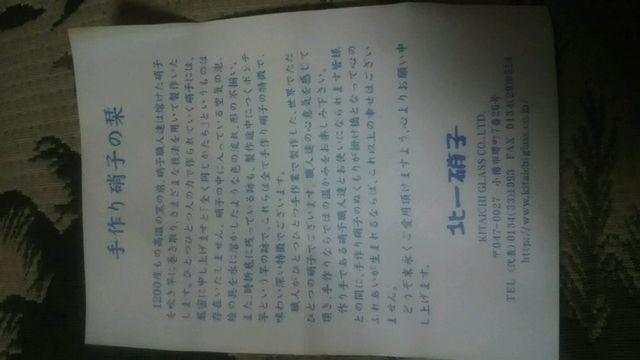 手作り硝子の栞
1200度もの高温の窯の前、硝子職人達は溶けた硝子
を吹き竿に巻き取り、さまざまな技法を用いて製作いた
します。ひとつひとつ人の力で作られていく硝子には、
厳密に申し上げますと「全く同じかたち」というものは
存在いたしません。硝子の中に入っている空気の泡、
絵の具を水に溶かしたような色の流れ、形の不揃い、
また、時折底に残っている跡も、製作途中につくポンテ
竿という竿の跡で、これらは全て手作り硝子の特徴で、
味わい深い特徴でございます。
職人がひとつひとつ手作業で製作した、世界でただ
ひとつの硝子でございます。職人達の心意気を感じて
頂き、手作りならではの温かみをお楽しみ下さい。
作り手である硝子職人達とお使いになられます皆様
との間に、手作り硝子のぬくもりが掛け橋となって心の
ふれあいが生まれるならば、これ以上の幸せはござい
ません。
どうぞ末永くご愛用頂けますよう、心よりお願い申
し上げます。
北一硝子
KITAICHI GLASS CO.,LTD.
〒047-0027 小樽市堺町7番26号
TEL (代表)0134(33)1993 FAX
http://www.kitaichiglass.co.jp/